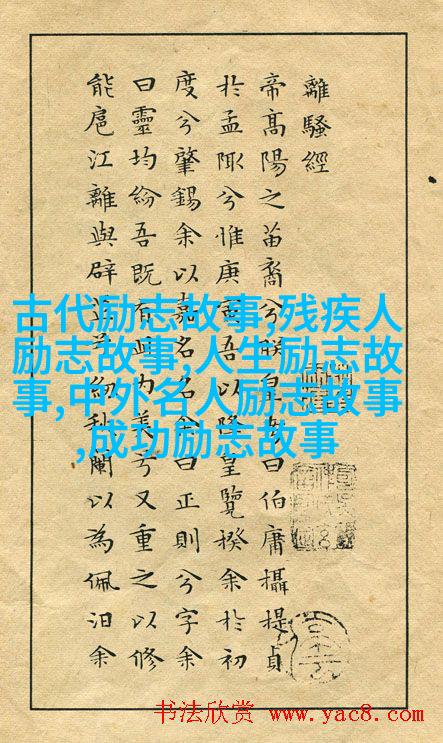 離騷經
帝髙陽之苗裔兮朕皇考曰伯庸攝提貞
於孟陬兮惟庚寅吾以降皇覽揆余於初
度兮肇錫余以嘉名名余曰正則兮字余
曰靈均紛吾既有此内美兮又重之以修
能扈江離與辟芷兮紉秋蘭以為佩汨余
古代励志故事,残疾人
励志故事,人生励志故
事,中外名人励志故事
,成功励志故事
书法欣赏 www.yac8.com